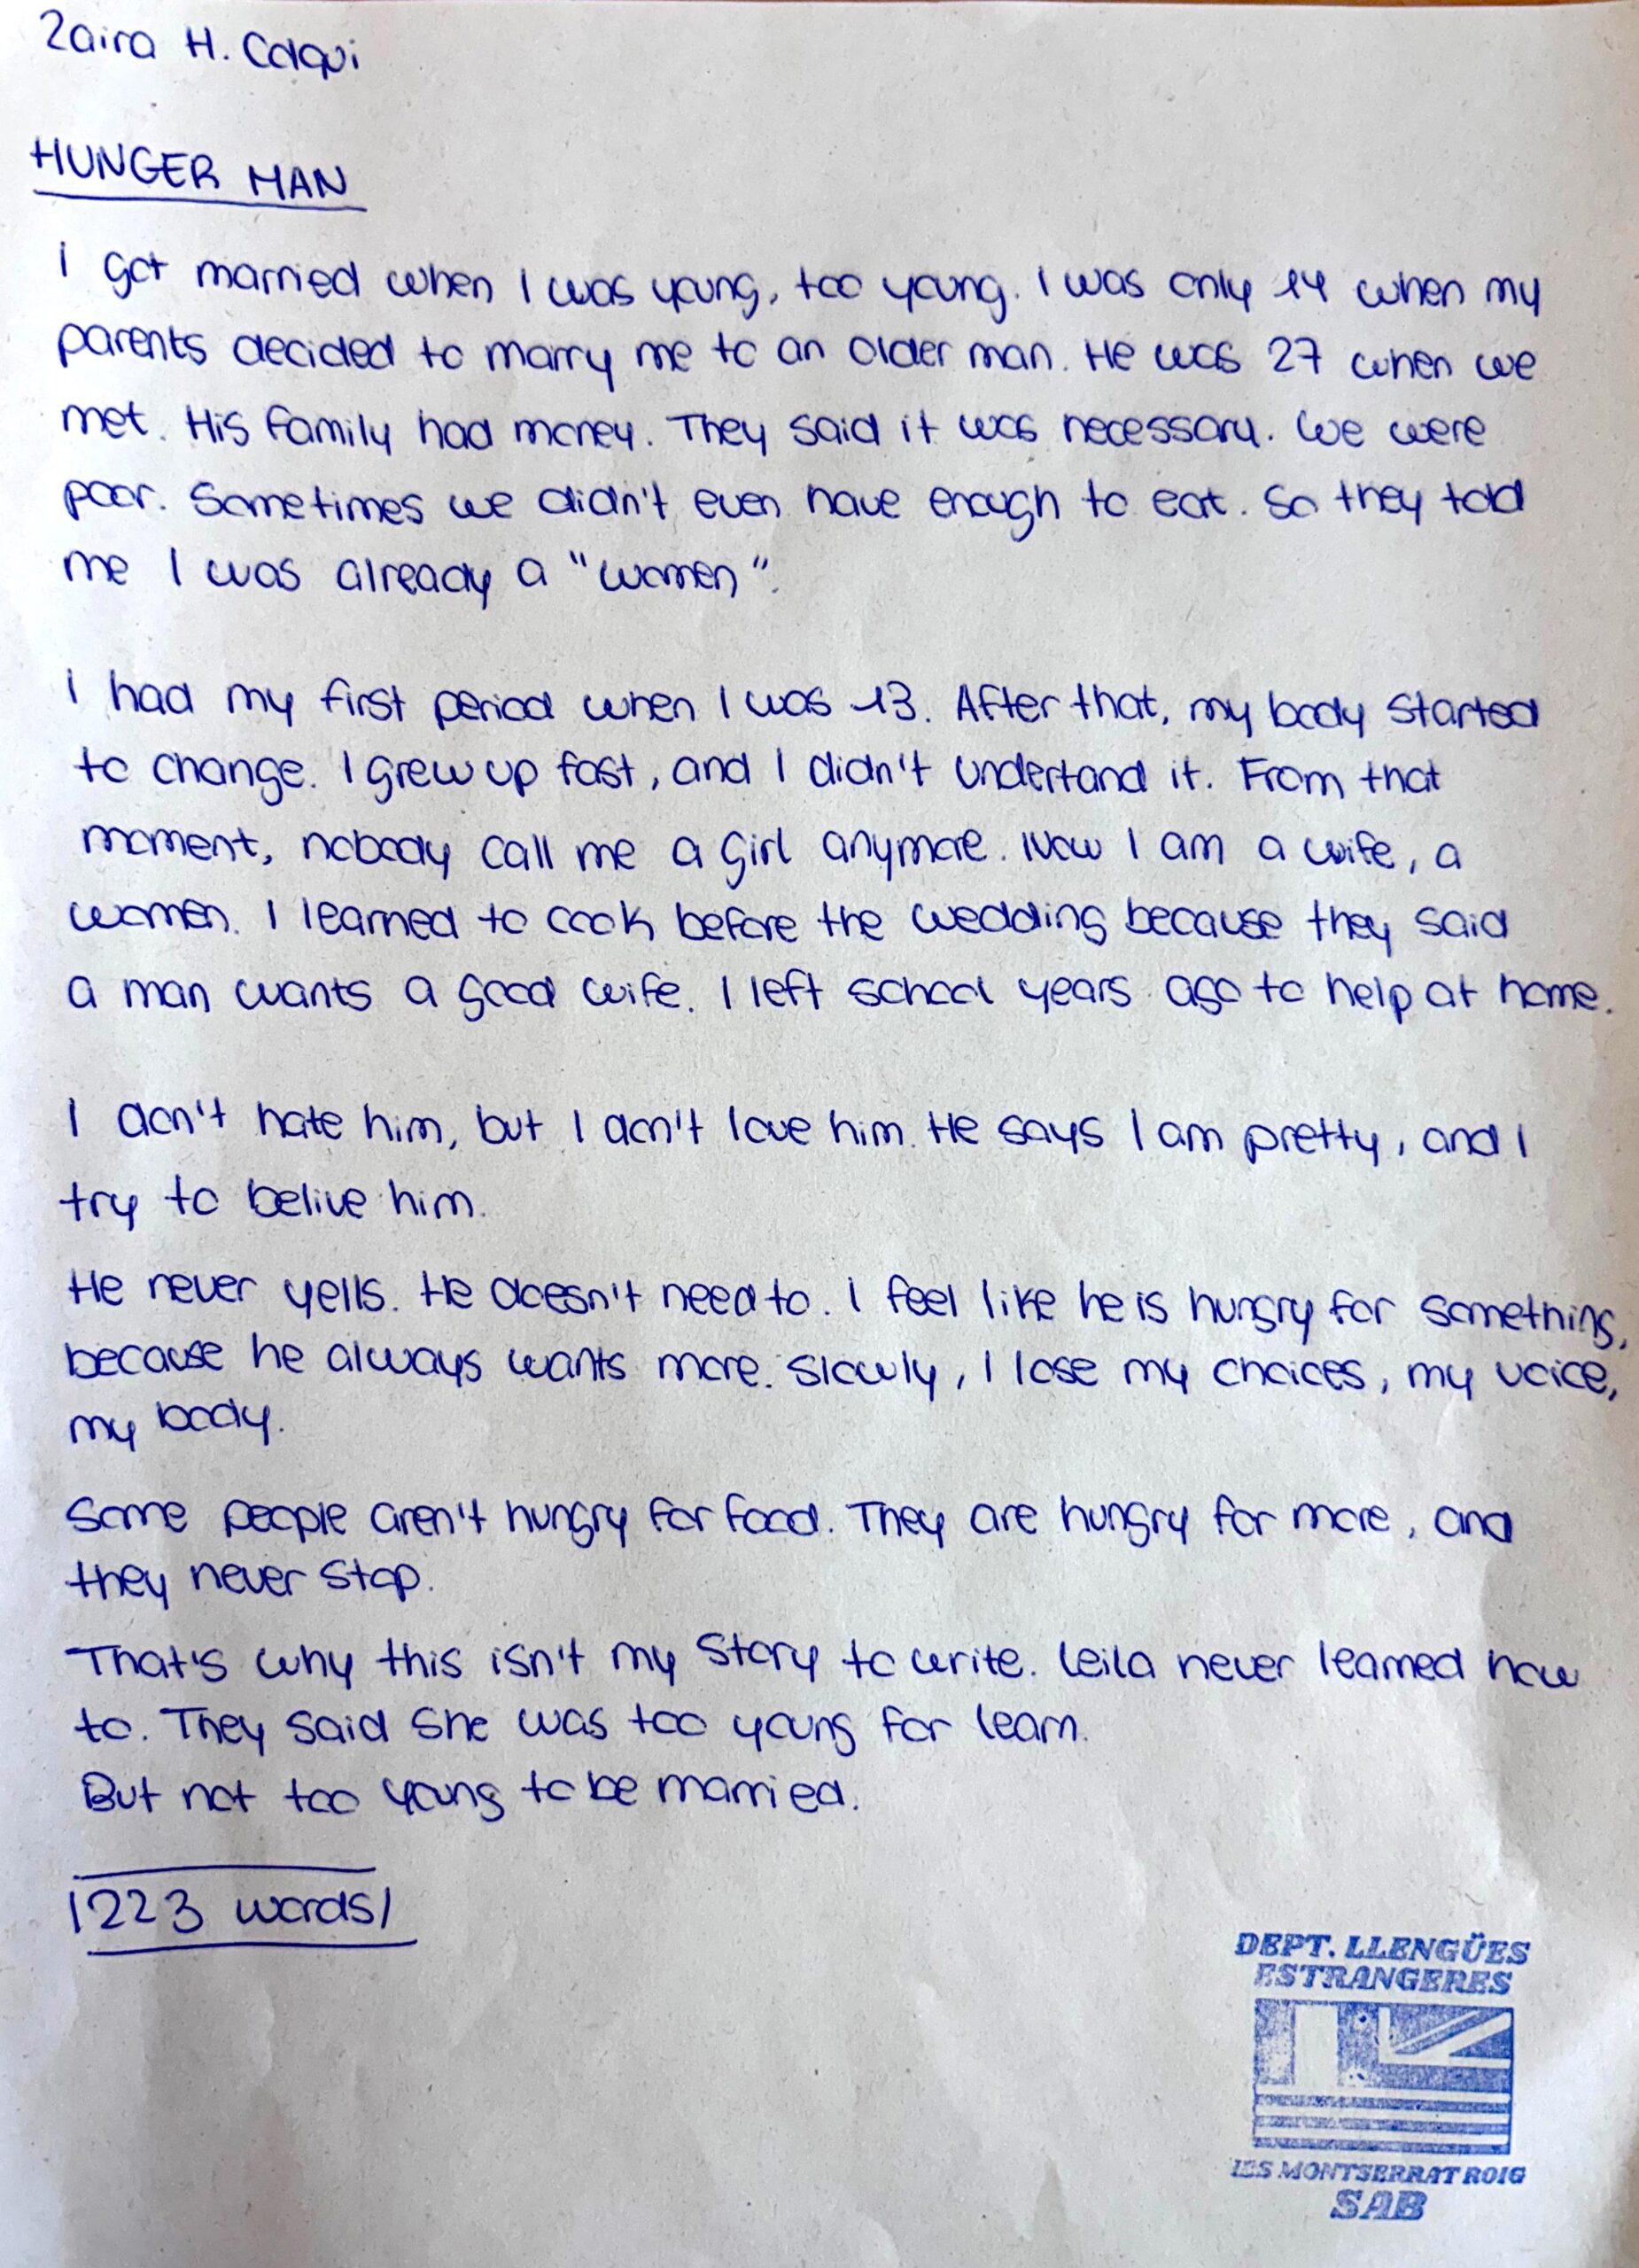 Zaira H. Colqui
HUNGER MAN
I got married when I was young, too young. I was only 14 when my
parents decided to marry me to an older man. He was 27 when we
met. His family had money. They said it was necessary. We were
poor. Sometimes we didn't even have enough to eat. So they told
me I was already a "women".
I had my first period when I was 13. After that, my body started
to change. I grew up fast, and I didn't undertand it. From that
moment, nobody call me a girl anymore. Now I am a wife, a
women. I learned to cook before the wedding because they said
a man wants a good wife. I left school years ago to help at home.
I don't hate him, but I don't love him. He says I am pretty, and I
try to belive him.
He never yells. He doesn't need to. I feel like he is hungry for something,
because he always wants more. Slowly, I lose my choices, my voice,
my body.
Some people aren't hungry for food. They are hungry for more, and
they never stop.
That's why this isn't my story to write. Leila never learned how
to. They said she was too young for learn.
But not too young to be married.
|223 words|
DEPT. LLENGÜES
ESTRANGERES
IES MONTSERRAT ROIG
SAB